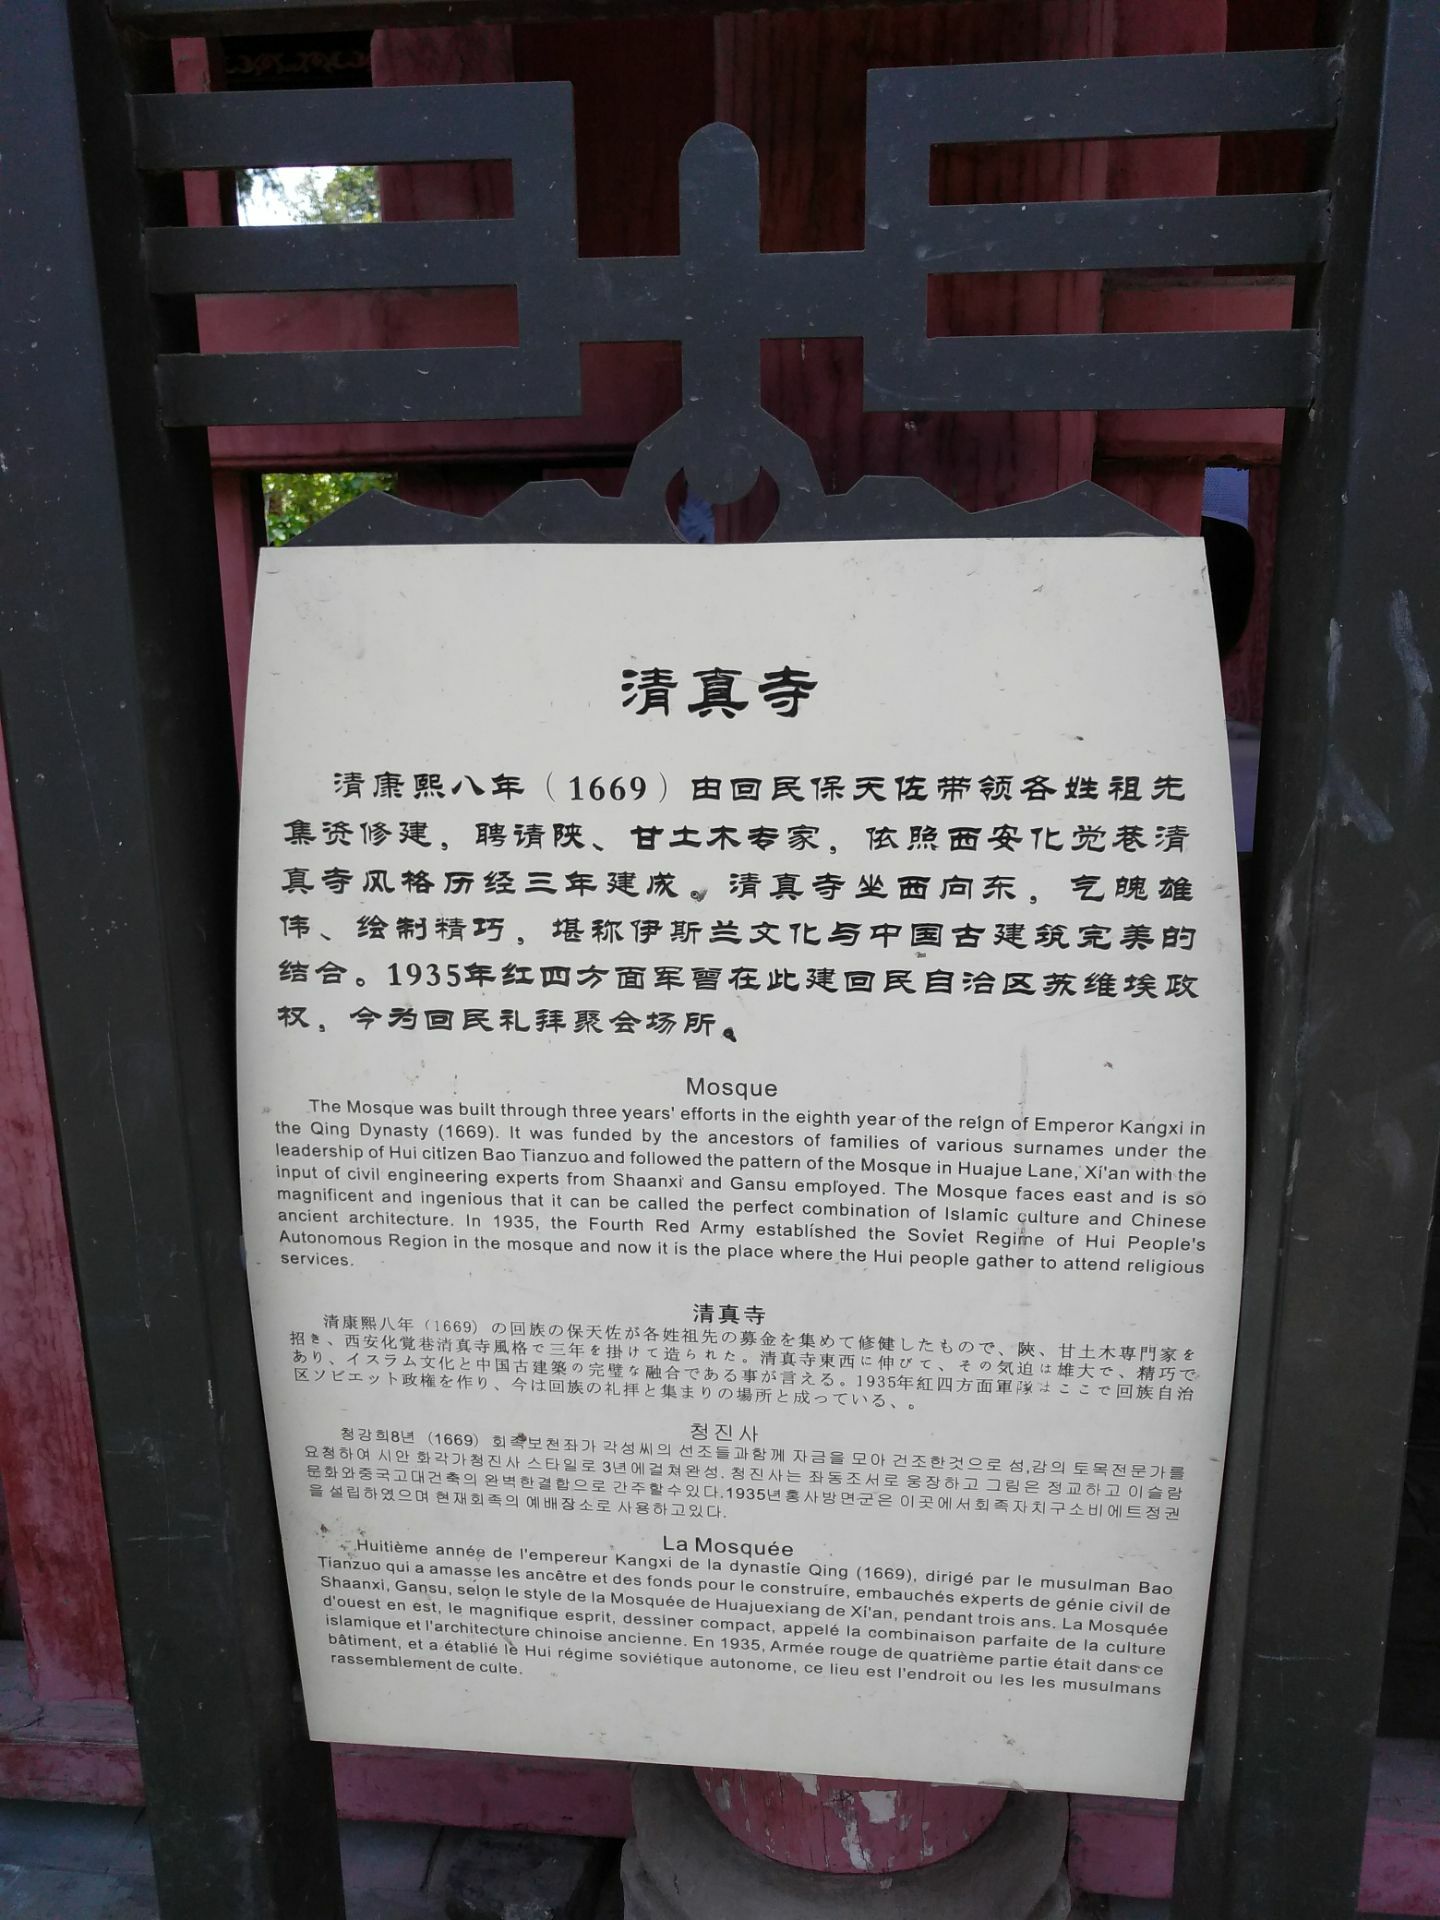 清真寺
清康熙八年（1669）由回民保天佐带领各姓祖先
集资修建，聘请陕、甘土木专家，依照西安化觉巷清
真寺风格历经三年建成。清真寺坐西向东，气魄雄
伟、绘制精巧，堪称伊斯兰文化与中国古建筑完美的
结合。1935年红四方面军曾在此建回民自治区苏维埃政
权，今为回民礼拜聚会场所。
Mosque
The Mosque was built through three years' efforts in the eighth year of the reign of Emperor Kangxi in
the Qing Dynasty (1669). It was funded by the ancestors of families of various surnames under the
leadership of Hui citizen Bao Tianzuo and followed the pattern of the Mosque in Huajue Lane, Xi'an with the
input of civil engineering experts from Shaanxi and Gansu employed. The Mosque faces east and is so
magnificent and ingenious that it can be called the perfect combination of Islamic culture and Chinese
ancient architecture. In 1935, the Fourth Red Army established the Soviet Regime of Hui People's
Autonomous Region in the mosque and now it is the place where the Hui people gather to attend religious
services.
清真寺
清康熙八年（1669）の回族の保天佐が各姓祖先の募金を集めて修健したもので、陝、甘土木専門家を
招き、西安化覚巷清真寺風格で三年を掛けて造られた。清真寺東西に伸びて、その気迫は雄大で、精巧で
あり、イスラム文化と中国古建築の完璧な融合である事が言える。1935年紅四方面軍隊はここで回族自治
区ソビエット政権を作り、今は回族の礼拝と集まりの場所と成っている、。
청진사
청강희8년（1669）회족보천좌가 각성씨의 선조들과함께 자금을 모아 건조한것으로 섬,감의 토목전문가를
요청하여 시안 화각가청진사 스타일로 3년에걸쳐완성. 청진사는 좌동조서로 웅장하고 그림은 정교하고 이슬람
문화와중국고대건축의 완벽한결합으로 간주할수있다.1935년홍사방면군은 이곳에서회족자치구소비에트정권
을 설립하였으며 현재회족의 예배장소로 사용하고있다.
La Mosquée
Huitième année de l'empereur Kangxi de la dynastie Qing (1669), dirigé par le musulman Bao
Tianzuo qui a amasse les ancêtre et des fonds pour le construire, embauchés experts de génie civil de
Shaanxi, Gansu, selon le style de la Mosquée de Huajuexiang de Xi'an, pendant trois ans. La Mosquée
d'ouest en est, le magnifique esprit, dessiner compact, appelé la combinaison parfaite de la culture
islamique et l'architecture chinoise ancienne. En 1935, Armée rouge de quatrième partie était dans ce
bâtiment, et a établié le Hui régime soviétique autonome, ce lieu est l'endroit ou les les musulmans
rassemblement de culte.